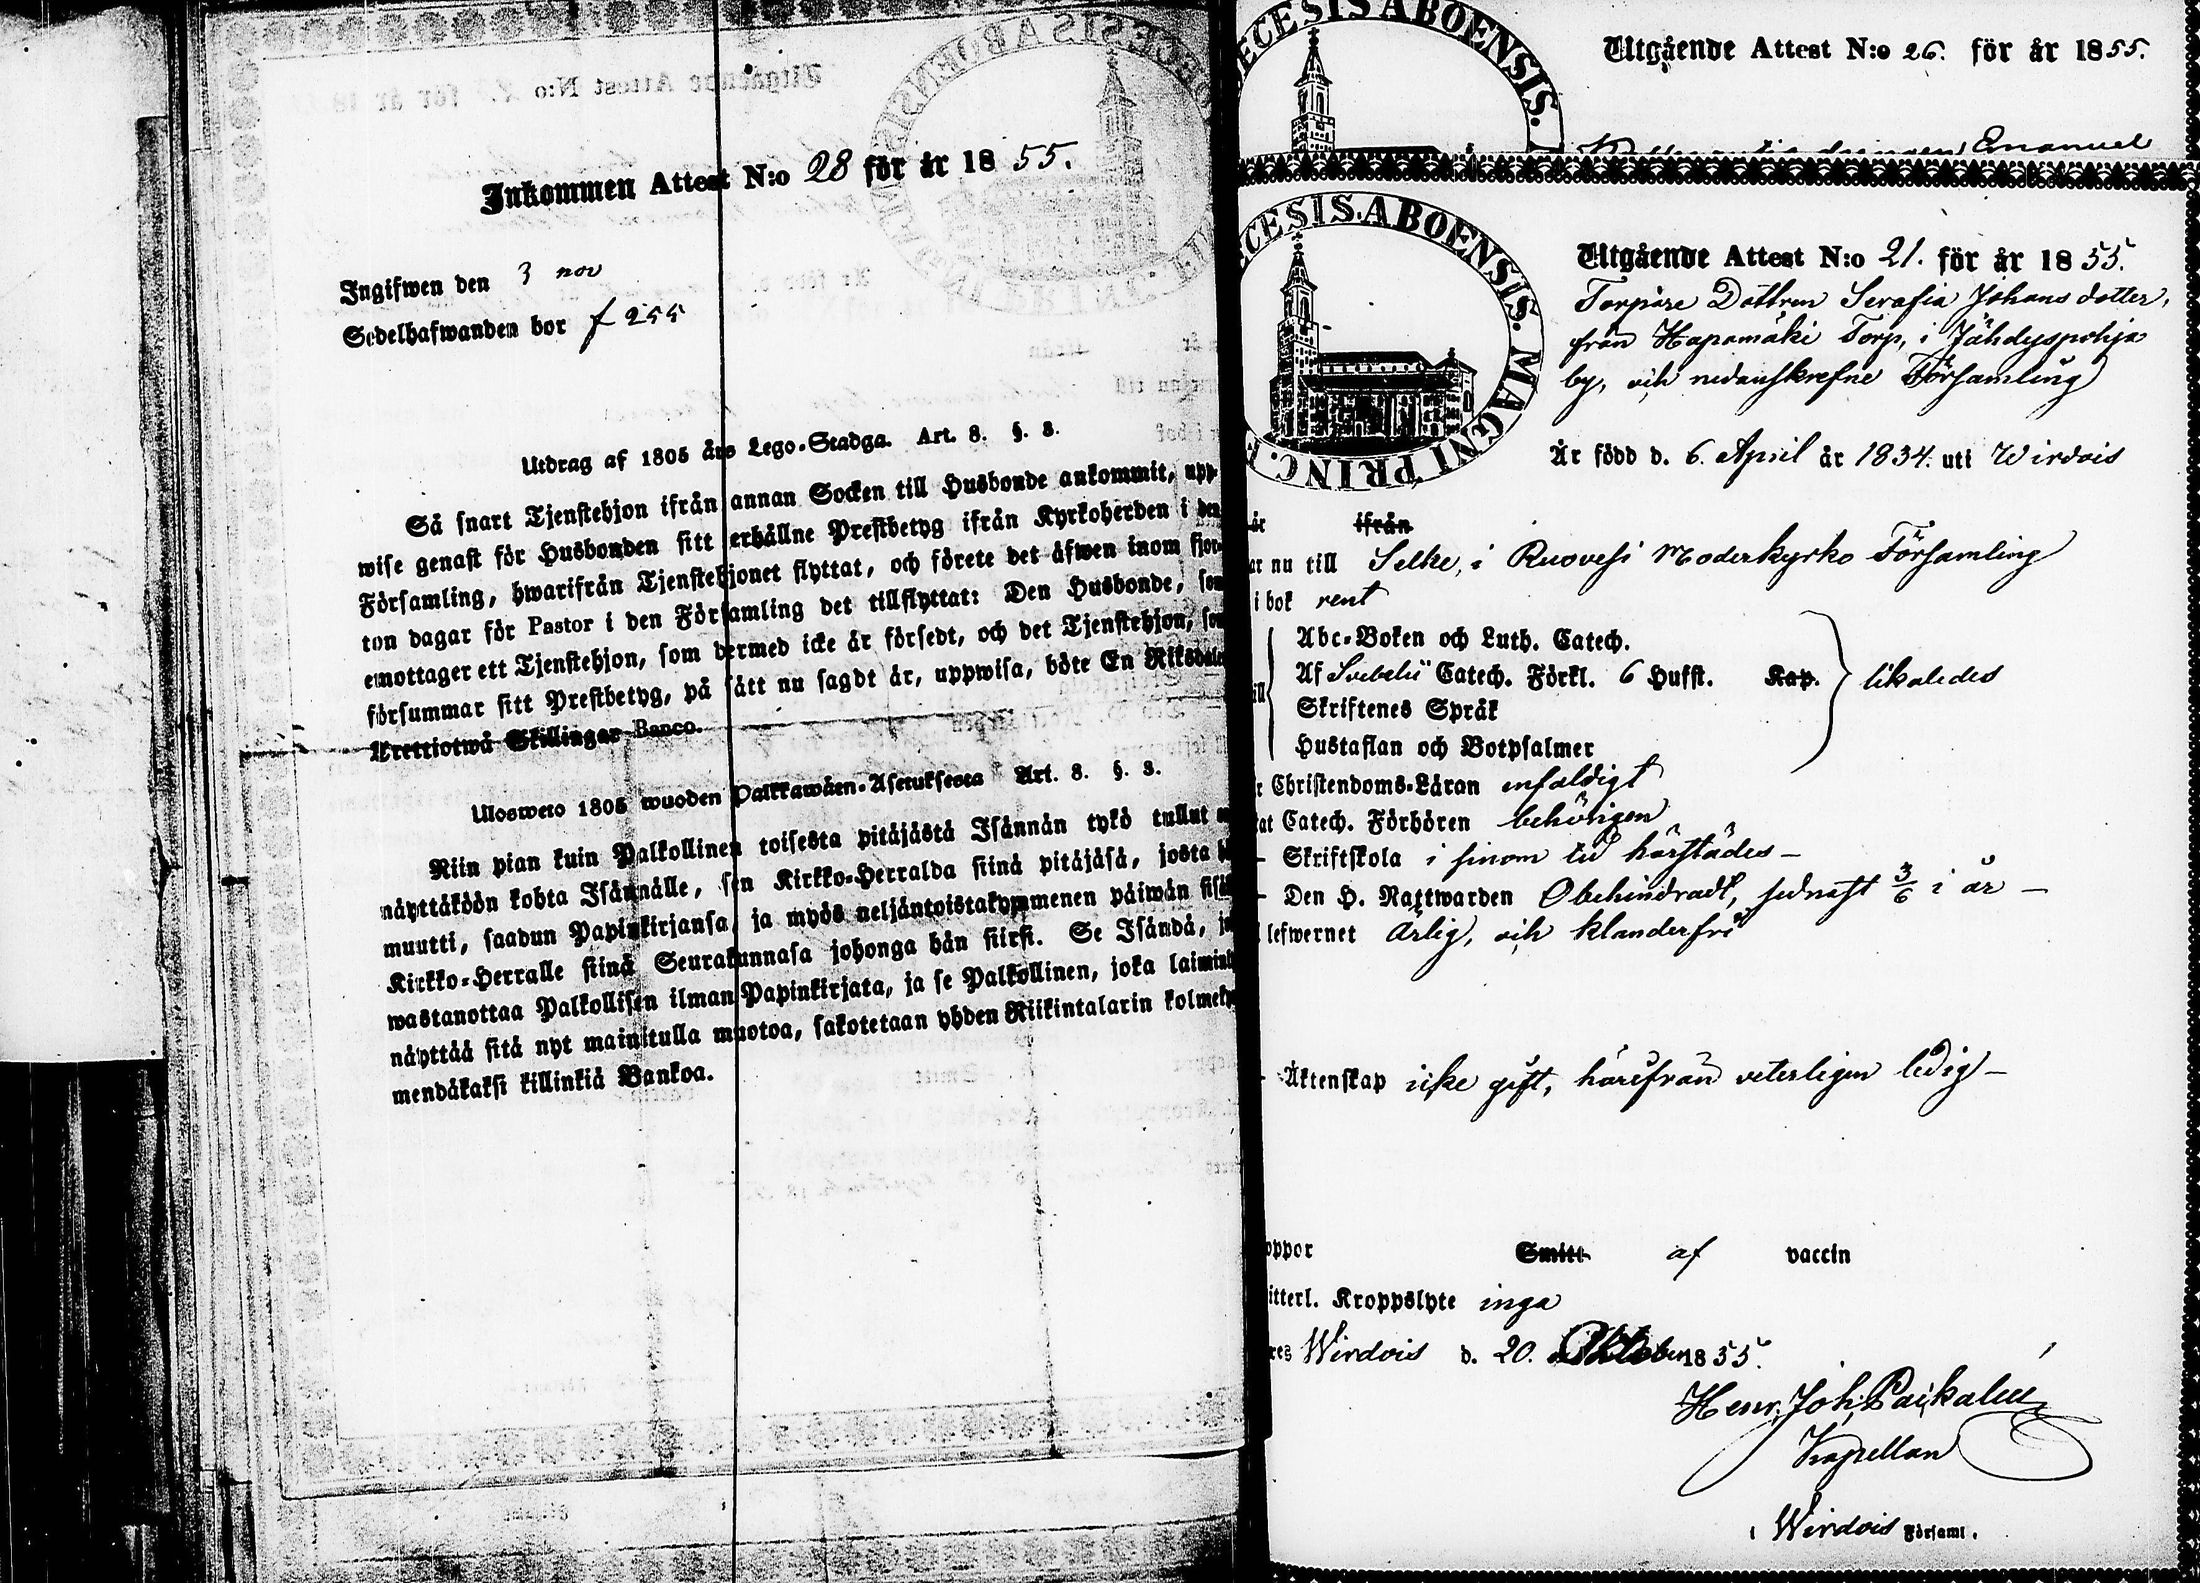 Inkommen Attest N:o 28 för år 1855.
Ingifwen den 3 nov
Sedelhafwanden bor f 255
Utdrag af 1805 års Lego-Stadga. Art. 8. §. 3.
Så snart Tjenstehjon ifrån annan Socken till Husbonde ankommit, upp-
wise genast för Husbonden sitt erhållne Prestbetyg ifrån Kyrkoherden i den
Församling, hwarifrån Tjenstehjonet flyttat, och förete det äfwen inom fjor-
ton dagar för Pastor i den Församling det tillflyttat: Den Husbonde, som
emottager ett Tjenstehjon, som dermed icke är försedt, och det Tjenstehjon, som
försummar sitt Prestbetyg, på sätt nu sagdt är, uppwisa, böte En Riksdaler
Trettiotwå Skillingar Banco.
Ulosweto 1805 wuoden Palkkawäen-Asetuksesta Art. 8. §. 3.
Niin pian kuin Palkollinen toisesta pitäjästä Isännän tykö tullut on
näyttäköön kohta Isännälle, sen Kirkko-Herralda siinä pitäjäsä, josta
muutti, saadun Papinkirjansa, ja myös neljäntoistakymmenen päiwän sisäl
Kirkko-Herralle siinä Seurakunnasa johonga hän siirsi. Se Isändä, jo
wastanottaa Palkollisen ilman Papinkirjata, ja se Palkollinen, joka laimin
näyttää sitä nyt mainitulla muotoa, sakotetaan yhden Riikintalarin kolmeky
mendäkaksi killinkiä Bankoa.
ECESIS ABOENSIS.
Utgående Attest N:o 26. för år 1855.
Emanuel
ECESIS. ABOENSIS. MAGNI PRINC.
Utgående Attest N:o 21. för år 1855.
Torpare Dottren Serafia Johans dotter,
från Hapamäki Torp, i Jähdyspohja
by, och nedanskrefne Församling
Är född d. 6. April år 1834. uti Wirdois
är ifrån
ar nu till Selke, i Ruovesi Moderkyrko Församling
i bok rent
Abc-Boken och Luth. Catech.
Af Svebelii Catech. Förkl. 6 Hufst. Kap. likaledes
Skriftenes Språk
Hustaflan och Botpsalmer
r Christendoms-Läran enfaldigt
tat Catech. Förhören behörigen
- Skriftskola i sinom tid härstädes -
- Den H. Nattwarden Obehindradt, sednast 3/6 i år -
lefwernet Ärlig, och klanderfri
- Äktenskap icke gift, härifrån veterligen ledig -
oppor Smitt af vaccin
itterl. Kroppslyte inga
res Wirdois d. 20. Oktober 1855.
Henr. Joh. Paikalén
Kapellan
i Wirdois Församl.